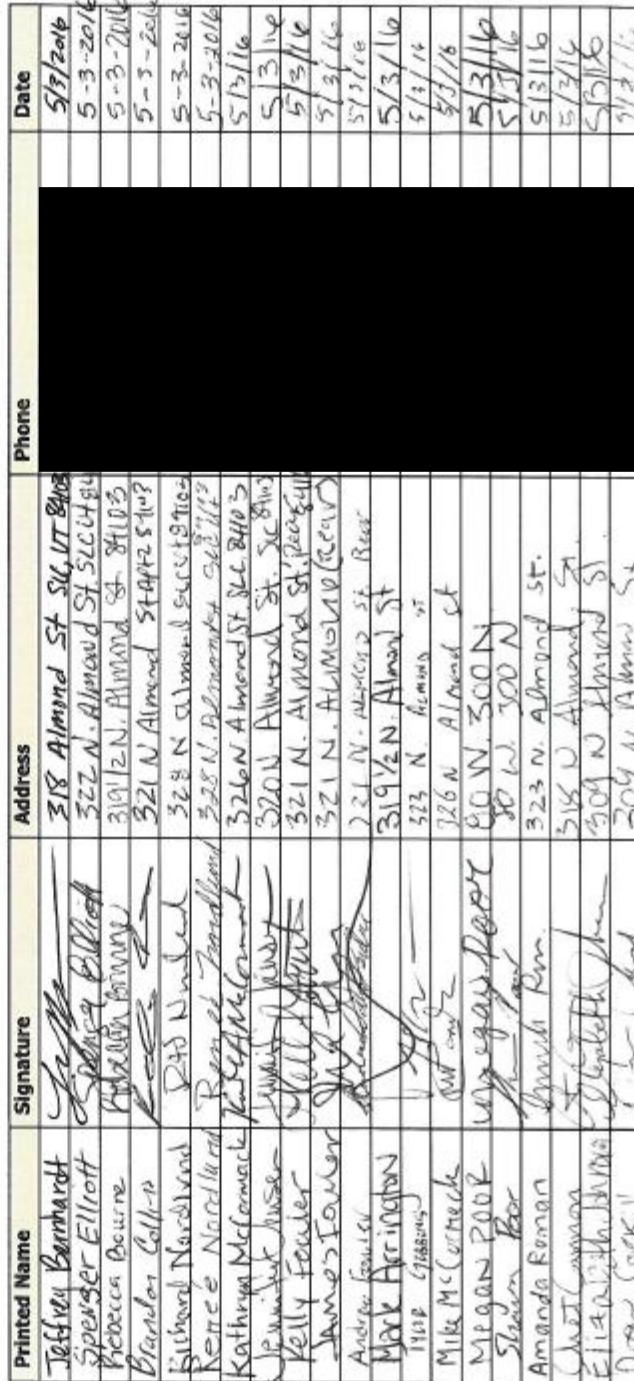 Printed Name Signature Address Phone Date
Jeffrey Barnhardt 318 Almond St SLC, UT 84103 5/3/2016
Spenser Elliott Spenser Elliott 322 N. Almond St. SLC 5-3-2016
Rebecca Bourne Rebecca Bourne 319 1/2 N. Almond St. 84103 5-3-2016
Brandon Collins 321 N Almond St 5-3-2016
Richard Nordlund 328 N Almond 5-3-2016
Renee Nordlund Renee Nordlund 328 N. Almond St 5-3-2016
Kathryn McCormack 326 N Almond St. SLC 84103 5/3/16
320 N Almond St. SLC 84103 5/3/16
Kelly Fowler 321 N. Almond St. Rear 5/3/16
James Fowler 321 N. ALMOND (Rear) 5/3/16
Andrew Fowler 321 N. Almond St. Rear 5/3/16
Mark Arrington 319 1/2 N. Almond St 5/3/16
323 N. Almond St 5/3/16
Mike McCormack 326 N Almond St 5/3/16
Megan Poor Megan Poor 80 W. 300 N 5/3/16
Shawn Poor 80 W. 300 N 5/3/16
Amanda Roman 323 N. Almond St. 5/3/16
Chet Cannon N Almond St. 5/3/16
Elizabeth 309 N Almond St. 5/3/16
309 N Almond St 5/3/16